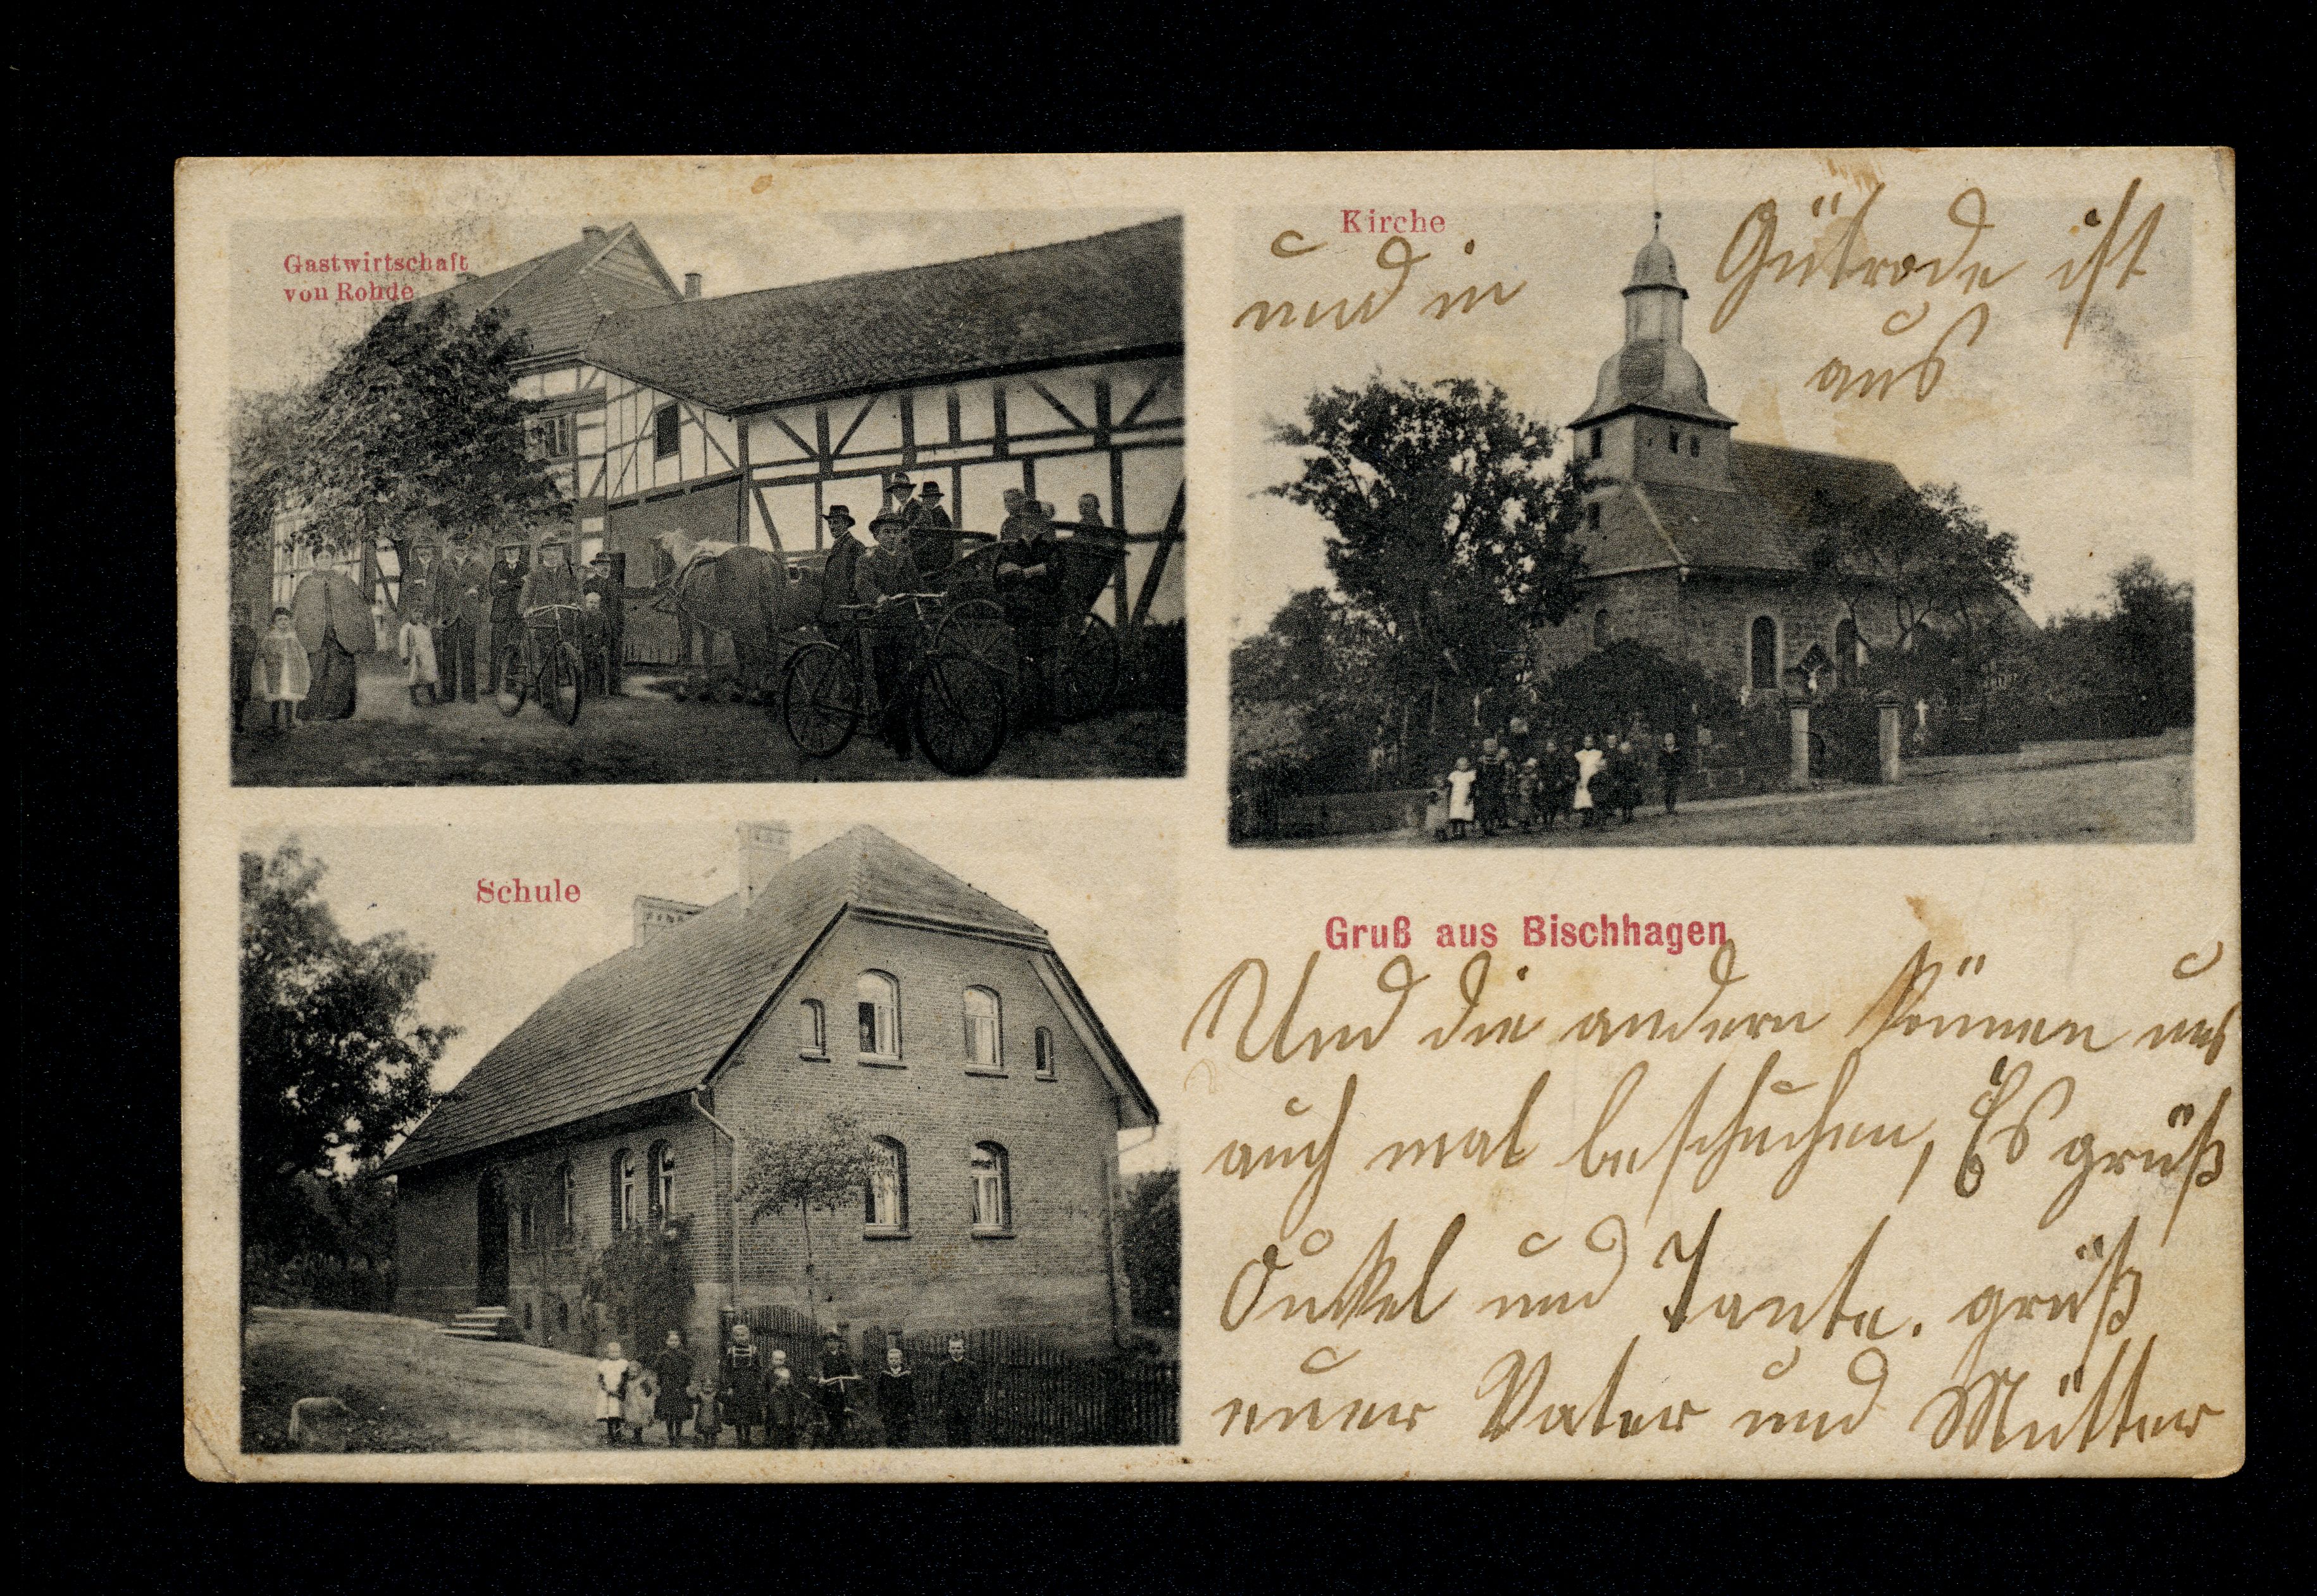 Gastwirtschaft
von Rohde
Kirche
und in Gütrode ist
aus
Schule
Gruß aus Bischhagen
Und die andern können uns
auch mal beschuchen, Es grüß
Onkel und Tante. grüß
euer Vater und Mütter